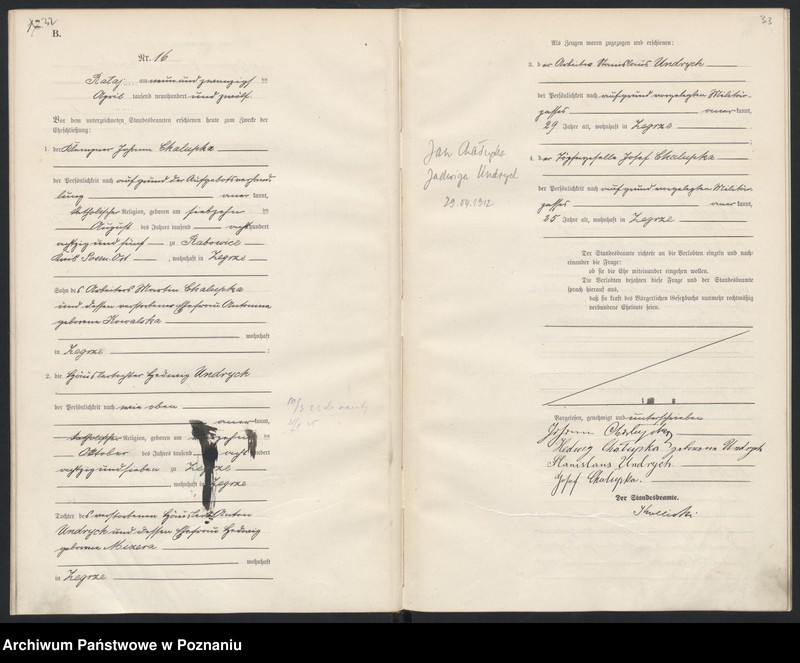 B.
Nr. 16
Rataj am neun und zwanzigsten
April tausend neunhundert und zwölf
Vor dem unterzeichneten Standesbeamten erschienen heute zum Zwecke der
Eheschließung:
1. der Klempner Johann Chalupka
der Persönlichkeit nach auf Grund der Aufgebotsverhand-
lung anerkannt,
katholischer Religion, geboren am siebzehnten
August des Jahres tausend achthundert
achtzig und fünf zu Rabowice
Kreis Posen Ost, wohnhaft in Zegrze
Sohn des Arbeiters Martin Chalupka
und dessen verstorbener Ehefrau Antonina
geborene Kowalska
wohnhaft
in Zegrze
2. die Häuslertochter Hedwig Undrych
der Persönlichkeit nach wie oben
anerkannt,
katholischer Religion, geboren am
Oktober des Jahres tausend achthundert
achtzig und sieben zu Zegrze
, wohnhaft in Zegrze
Tochter des verstorbenen Häuslers Anton
Undrych und dessen Ehefrau Hedwig
geborene Mizera
wohnhaft
in Zegrze
33
Als Zeugen waren zugezogen und erschienen:
3. der Arbeiter Stanislaus Undrych
der Persönlichkeit nach auf Grund vorgelegten Militär-
passes anerkannt,
29 Jahre alt, wohnhaft in Zegrze
4. der Töpfergeselle Josef Chalupka
der Persönlichkeit nach auf Grund vorgelegten Militär-
passes anerkannt,
35 Jahre alt, wohnhaft in Zegrze
Jan Chałupka
Jadwiga Undrych
29.04.1912
Der Standesbeamte richtete an die Verlobten einzeln und nach-
einander die Frage:
ob sie die Ehe miteinander eingehen wollen.
Die Verlobten bejahten diese Frage und der Standesbeamte
sprach hierauf aus,
daß sie kraft des Bürgerlichen Gesetzbuchs nunmehr rechtmäßig
verbundene Eheleute seien.
Vorgelesen, genehmigt und unterschrieben
Johann Chałupka
Hedwig Chałupka geborene Undrych
Stanislaus Undrych.
Josef Chalupka.
Der Standesbeamte.
Archiwum Państwowe w Poznaniu